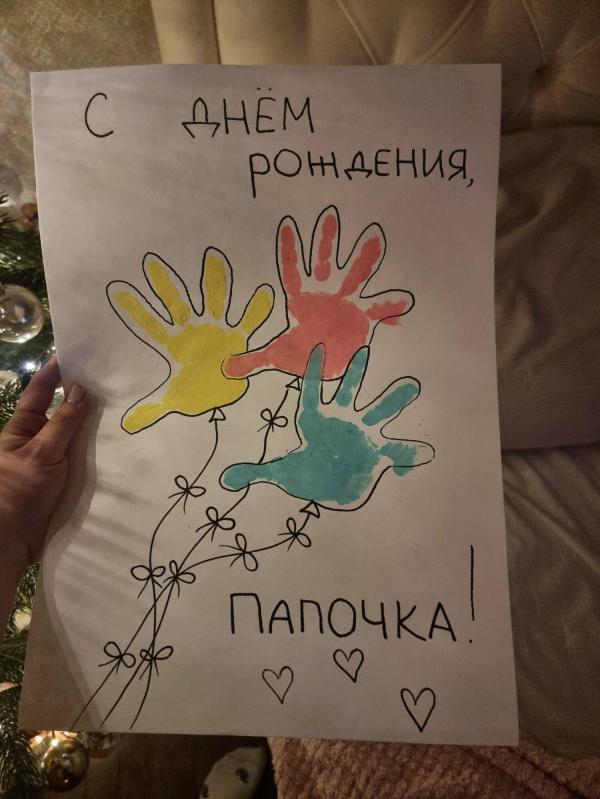 С ДНЁМ
РОЖДЕНИЯ,
ПАПОЧКА!